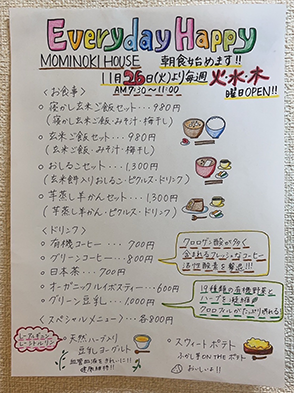 Everyday Happy
MOMINOKI HOUSE 朝食始めます!!
11月26日(火)より毎週 火・水・木
AM7:30〜11:00 曜日OPEN!!
〈お食事〉
○ 寝かし玄米ご飯セット・・・980円
(寝かし玄米ご飯・みそ汁・梅干し)
○ 玄米ご飯セット・・・980円
(玄米ご飯・みそ汁・梅干し)
○ おしるこセット・・・1,300円
(玄米餅入りおしるこ・ピクルス・ドリンク)
○ 芋蒸し羊かんセット・・・1,300円
(芋蒸し羊かん・ピクルス・ドリンク)
〈ドリンク〉
○ 有機コーヒー・・・700円
○ グリーンコーヒー・・・800円
○ 日本茶・・・700円
○ オーガニックハイビスティー・・・600円
○ グリーン豆乳・・・1,000円
クロロゲン酸が多く
フレッシュなコーヒー
活性酸素を
19種類の有機野菜と
ハーブを
クロロフィルがたっぷり摂れる
〈スペシャルメニュー〉・・・各800円
○ 天然ハーブ入り
豆乳ヨーグルト
○ スウィートポテト
ふかし芋 ON THE ポテト
おいしいよ!!